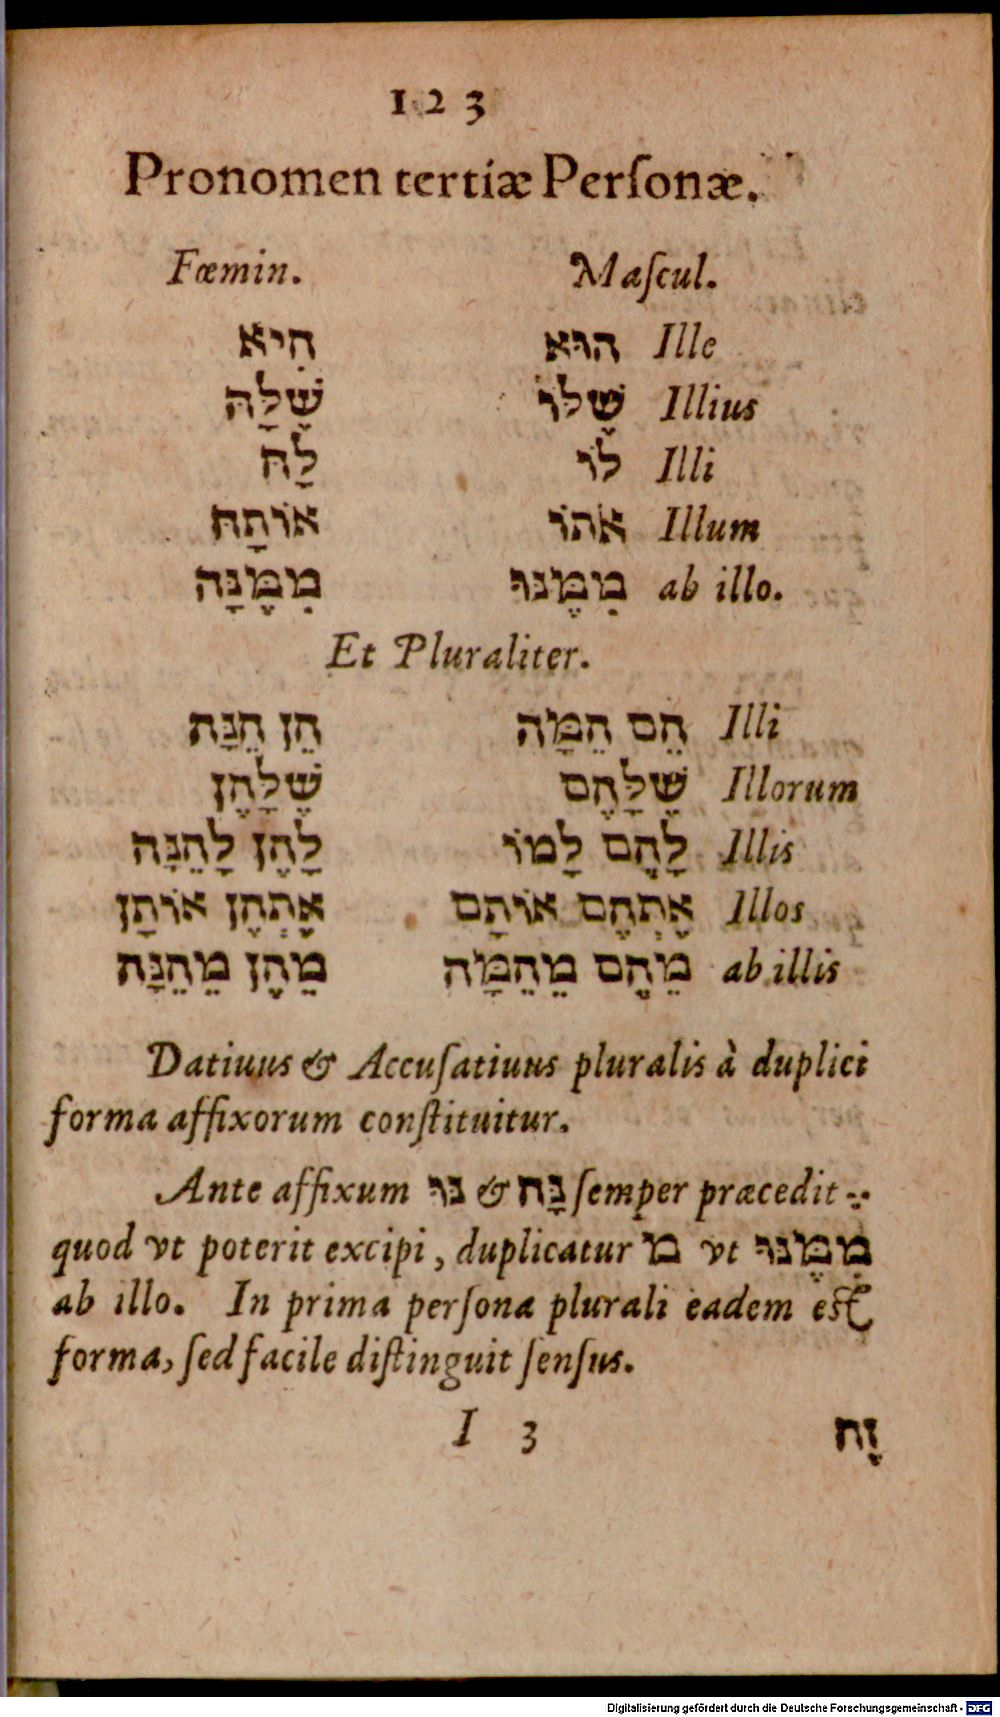 123
Pronomen tertiæ Perſonæ.
Fœmin. Maſcul.
הִיא הוּא Ille
שֶׁלָּהּ שֶׁלּוֹ Illius
לָהּ לוֹ Illi
אוֹתָהּ אֹתוֹ Illum
מִמֶּנָּה מִמֶּנּוּ ab illo.
Et Pluraliter.
הֵן הֵנָּה הֵם הֵמָּה Illi
שֶׁלָּהֶן שֶׁלָּהֶם Illorum
לָהֶן לָהֵנָּה לָהֶם לָמוֹ Illis
אֶתְהֶן אוֹתָן אֶתְהֶם אוֹתָם Illos
מֵהֶן מֵהֵנָּה מֵהֶם מֵהֵמָּה ab illis
Datiuus & Accuſatiuus pluralis à duplici
forma affixorum conſtituitur.
Ante affixum נּוּ & נָּה ſemper præcedit ֶ
quod vt poterit excipi, duplicatur מ vt מִמֶּנּוּ
ab illo. In prima perſona plurali eadem eſt
forma, ſed facile diſtinguit ſenſus.
I 3 זֶה
Digitalisierung gefördert durch die Deutsche Forschungsgemeinschaft - DFG